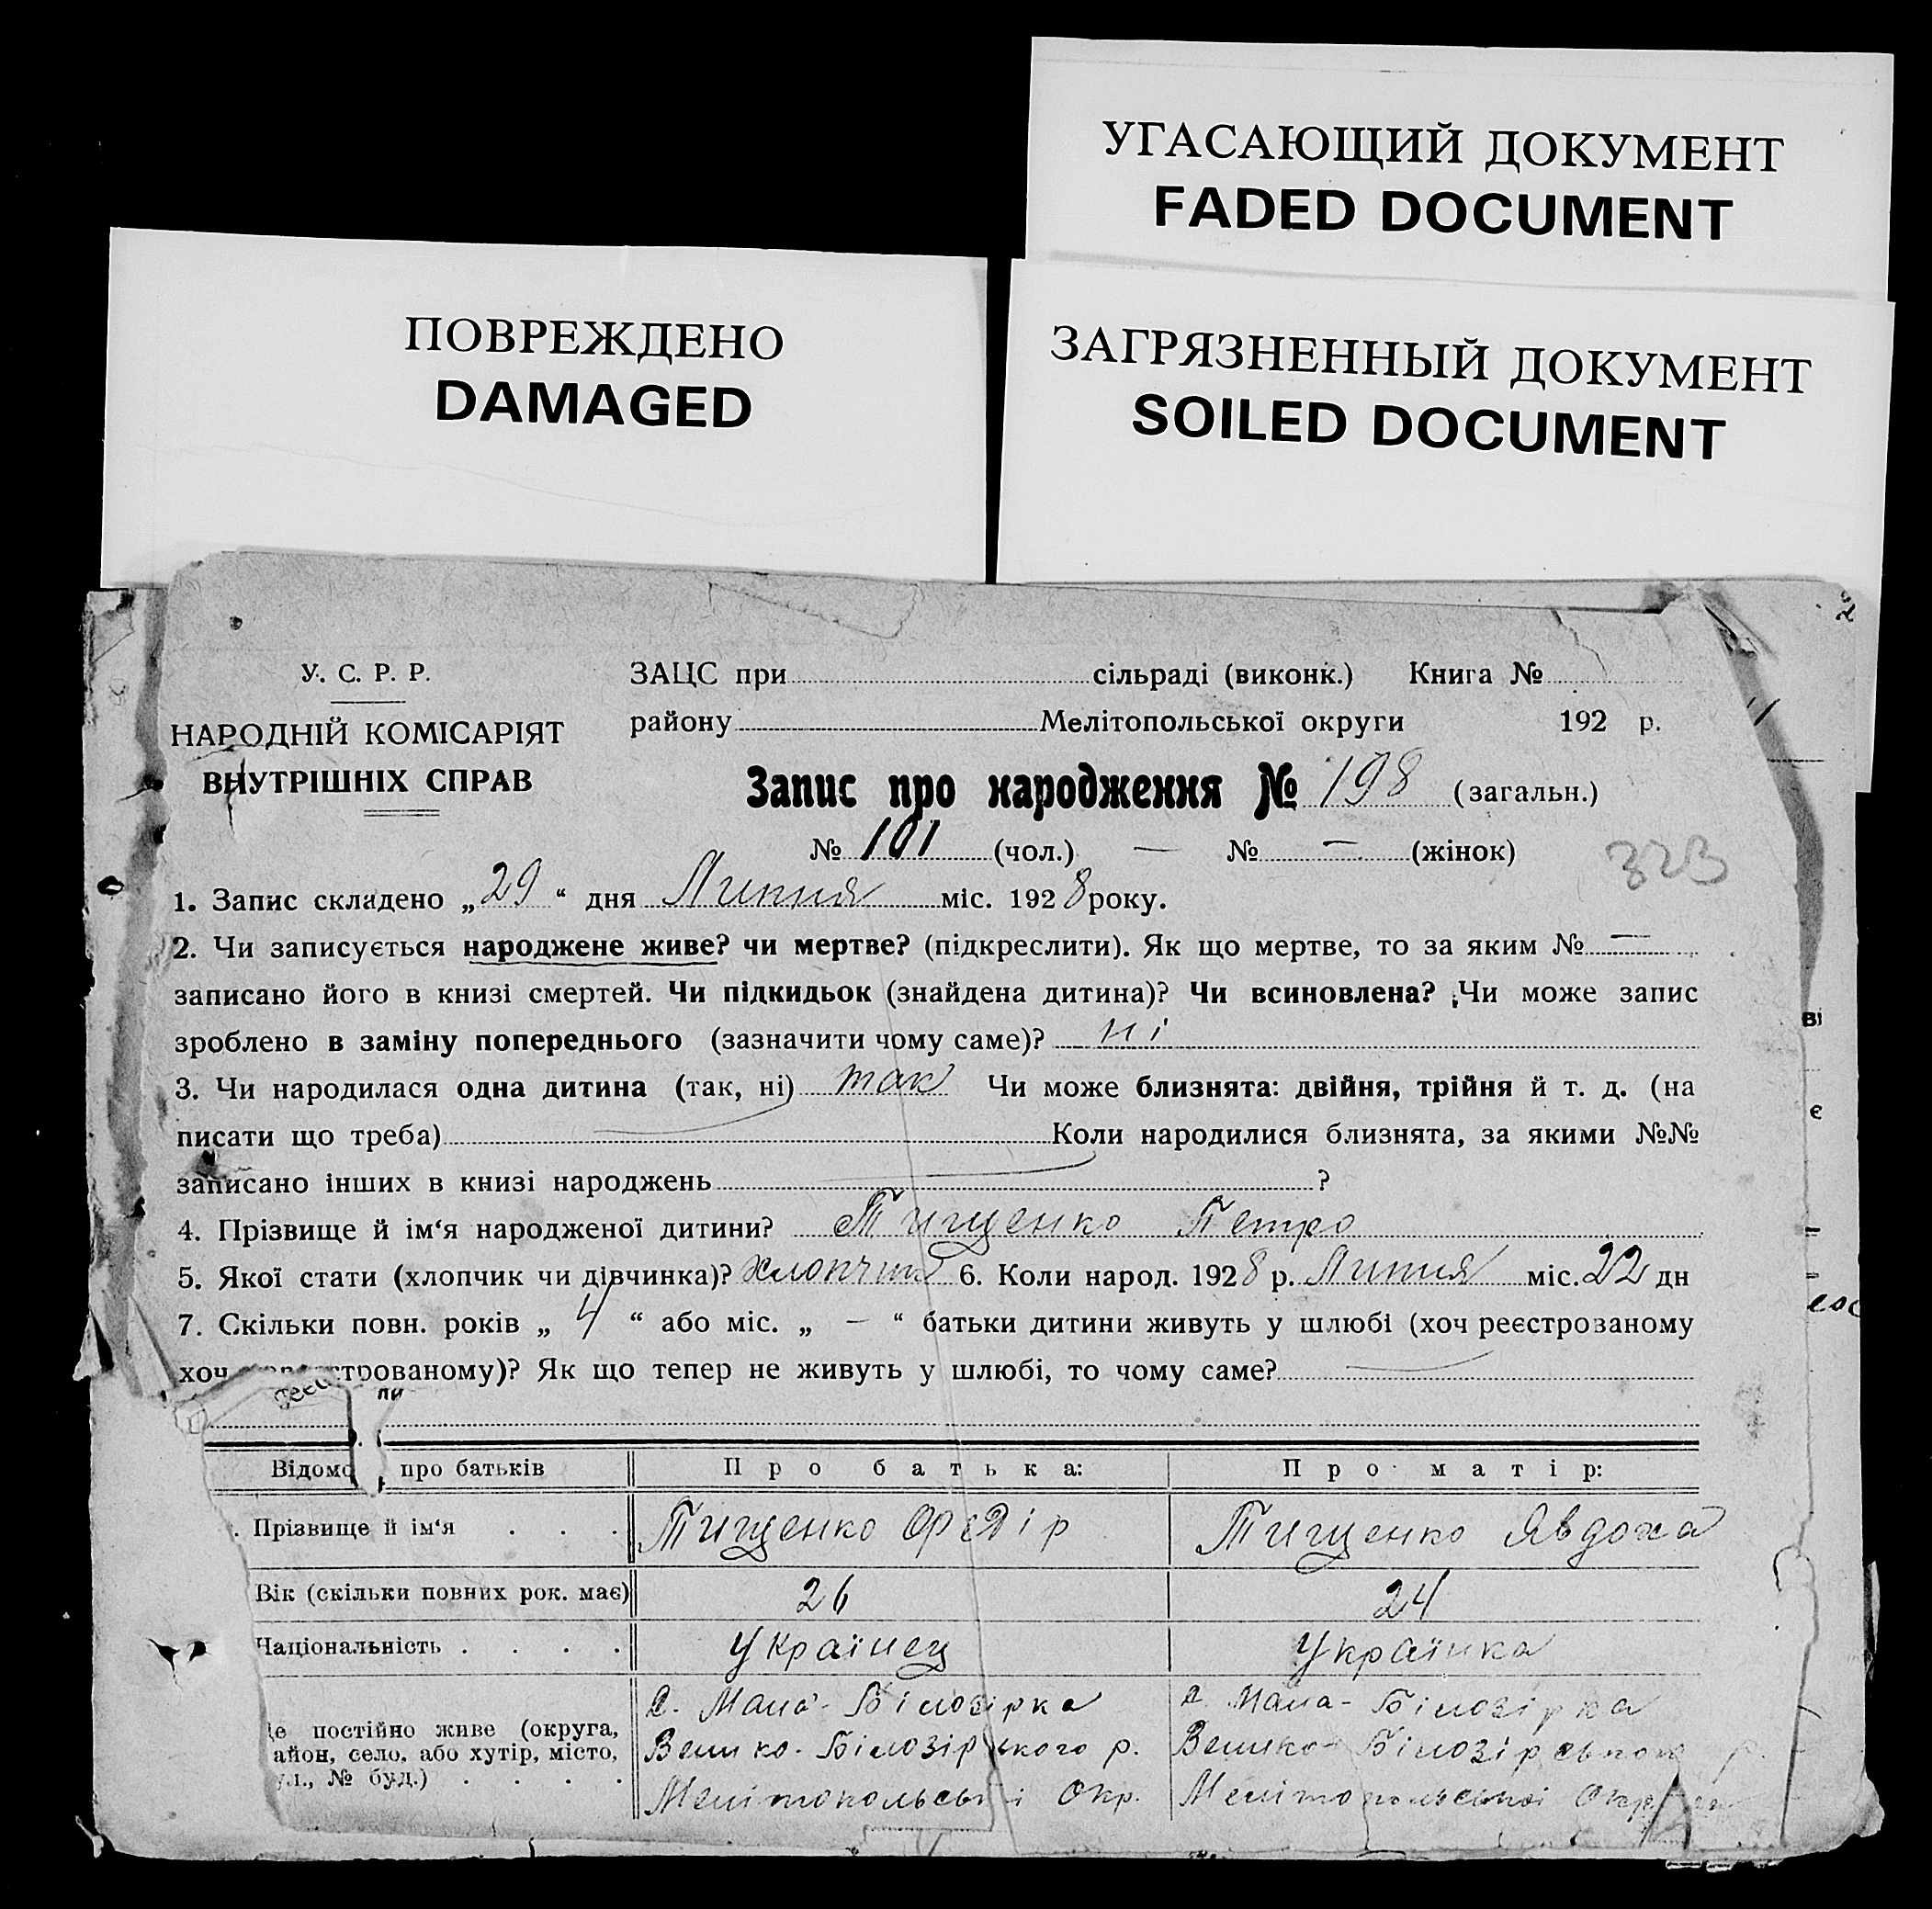 УГАСАЮЩИЙ ДОКУМЕНТ
FADED DOCUMENT
ПОВРЕЖДЕНО
DAMAGED
ЗАГРЯЗНЕННЫЙ ДОКУМЕНТ
SOILED DOCUMENT
У. С. Р. Р.
НАРОДНІЙ КОМІСАРІЯТ
ВНУТРІШНІХ СПРАВ
ЗАЦС при сільраді (виконк.) Книга №
району Мелітопольської округи 192 р.
Запис про народження № 198 (загальн.)
№ 101 (чол.) — № — (жінок)
323
1. Запис складено „29“ дня Липня міс. 1928 року.
2. Чи записується народжене живе? чи мертве? (підкреслити). Як що мертве, то за яким № —
записано його в книзі смертей. Чи підкидьок (знайдена дитина)? Чи всиновлена? Чи може запис
зроблено в заміну попереднього (зазначити чому саме)? ні
3. Чи народилася одна дитина (так, ні) так Чи може близнята: двійня, трійня й т. д. (на
писати що треба) Коли народилися близнята, за якими №№
записано інших в книзі народжень ?
4. Прізвище й ім‘я народженої дитини? Тищенко Петро
5. Якої стати (хлопчик чи дівчинка)? хлопчик 6. Коли народ. 1928 р. Липня міс. 22 дн
7. Скільки повн. років „ 4 “ або міс. „ — “ батьки дитини живуть у шлюбі (хоч реєстрованому
хоч строваному)? Як що тепер не живуть у шлюбі, то чому саме? —
Відомо про батьків Про батька: Про матір:
Прізвище й ім‘я . . . Тищенко Федір Тищенко Явдоха
Вік (скільки повних рок. має) 26 24
Національність . . . . Українец Українка
де постійно живе (округа,
айон, село, або хутір, місто,
ул., № буд.) . . . .
с. Мала-Білозірка
Велико-Білозірського р.
Мелітопольської Окр.
с. Мала-Білозірка
Велико-Білозірського р.
Мелітопольської